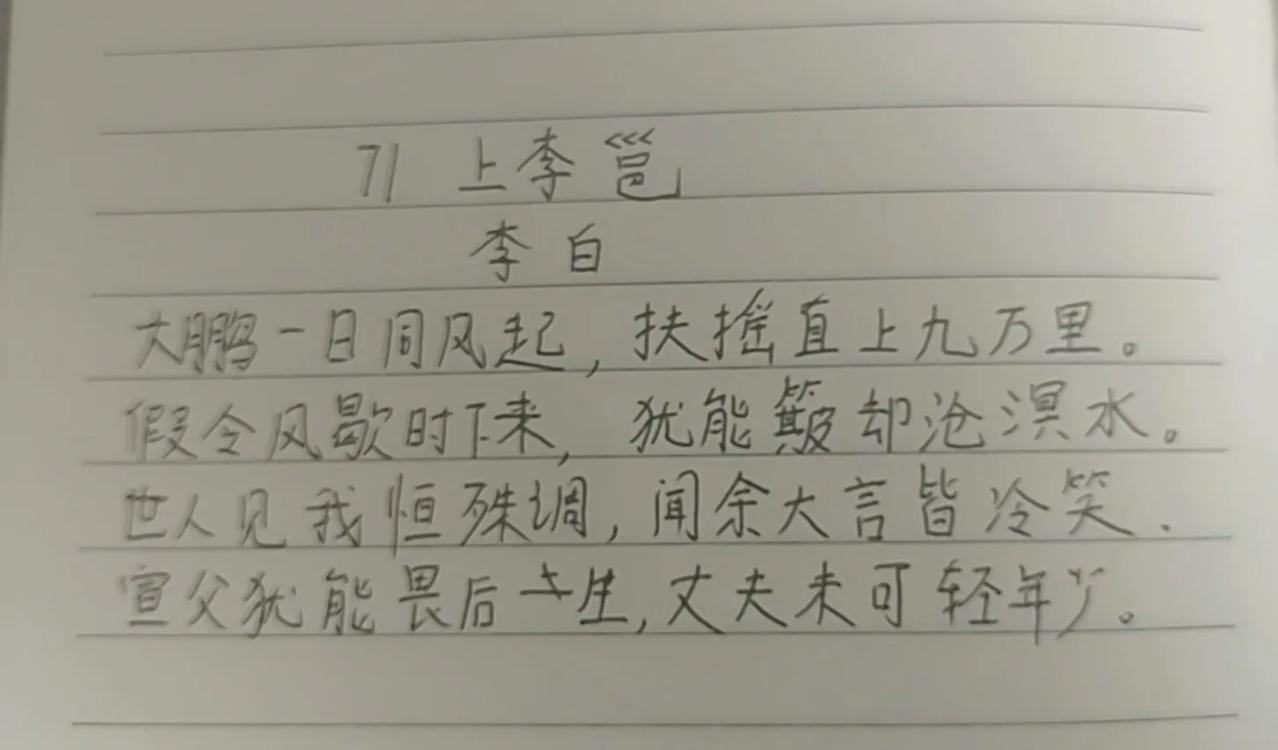 71 上李邕
李白
大鹏一日同风起，扶摇直上九万里。
假令风歇时下来，犹能簸却沧溟水。
世人见我恒殊调，闻余大言皆冷笑.
宣父犹能畏后生，丈夫未可轻年少。